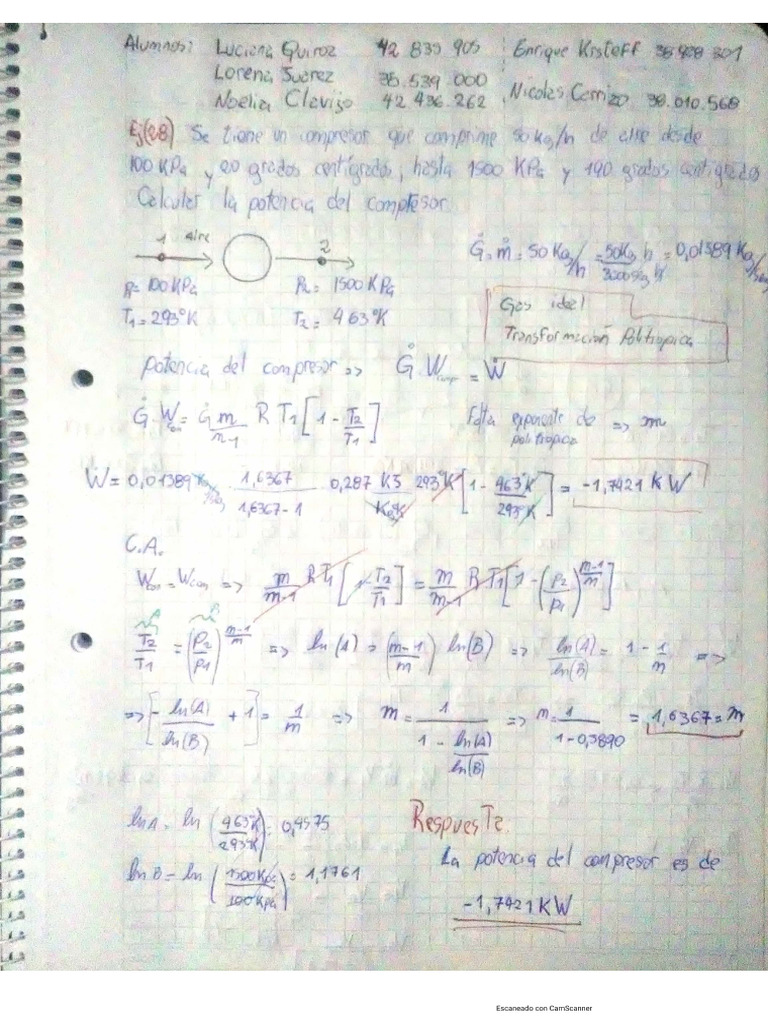 Alumnos: Luciana Quiroz 42 835 905 Enrique Kistoff 38 908 301
Lorena Suarez 38.539.000
Noelia Clavijo 42.436.262 Nicolas Carrizo 38.010.568
Ej(28) Se tiene un compresor que comprime 50 kg/h de aire desde
100 KPa y 20 grados centígrados, hasta 1500 KPa y 190 grados centigrados
Calcular la potencia del compresor
1 Aire 2
Ġ = ṁ = 50 Kg/h = 50Kg h / 3600seg h = 0,01389 Kg/seg
P1 = 100 KPa P2 = 1500 KPa
T1 = 293°K T2 = 463°K
Gas ideal
Transformación Politropica
Potencia del compresor => Ġ . Wcomp = Ẇ
Ġ . Wcon = Ġ m/m-1 R T1 [1 - T2/T1] Falta exponente de politropica => m
Ẇ = 0,01389 Kg/seg 1,6367 / 1,6367 - 1 0,287 KJ/Kg°K 293°K [1 - 463°K/293°K] = -1,7421 KW
C.A.
Wcon = Wcon => m/m-1 R T1 [1 - T2/T1] = m/m-1 R T1 [1 - (P2/P1)^m-1/m]
A B
T2/T1 = (P2/P1)^m-1/m => ln(A) = (m-1/m) ln(B) => ln(A)/ln(B) = 1 - 1/m =>
=> [- ln(A)/ln(B) + 1] = 1/m => m = 1 / 1 - ln(A)/ln(B) => m = 1 / 1 - 0,3890 = 1,6367 = m
ln A = ln (463°K/293°K) = 0,4575
ln B = ln (1500KPa/100KPa) = 1,1761
Respuesta
La potencia del compresor es de
-1,7421 KW
Escaneado con CamScanner